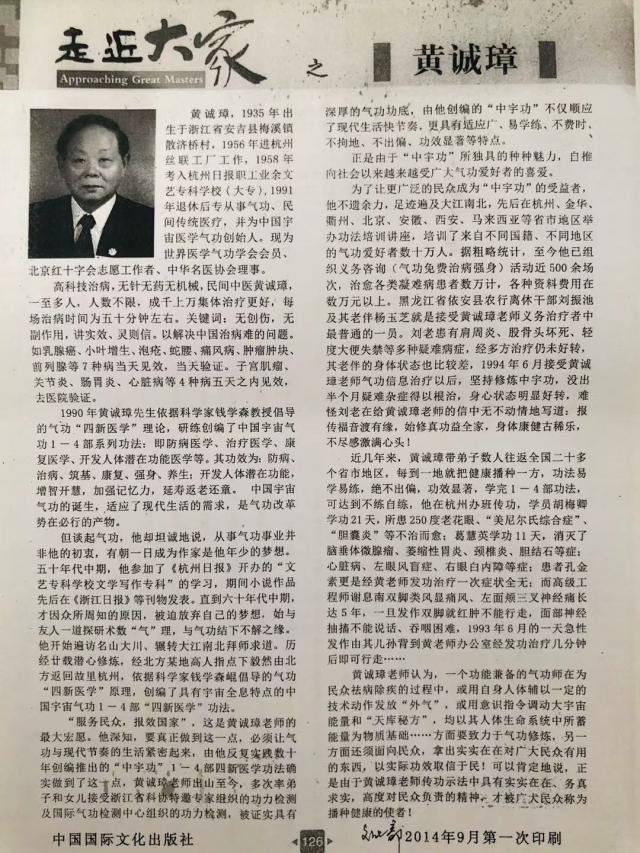 走近大家
Approaching Great Masters
之
黄诚璋
黄诚璋，1935年出
生于浙江省安吉县梅溪镇
散济桥村，1956年进杭州
丝联工厂工作，1958年
考入杭州日报职业业余文
艺专科学校（大专），1991
年退休后专从事气功、民
间传统医疗，并为中国宇
宙医学气功创始人。现为
世界医学气功学会会员、
北京红十字会志愿工作者、中华名医协会理事。
高科技治病，无针无药无机械，民间中医黄诚璋，
一至多人，人数不限，成千上万集体治疗更好，每
场治病时间为五十分钟左右。关键词：无创伤，无
副作用，讲实效、灵则信。以解决中国治病难的问题。
如乳腺癌、小叶增生、泡疮、蛇腰、痛风病、肿瘤肿块、
前列腺等7种病当天见效，当天验证。子宫肌瘤、
关节炎、肠胃炎、心脏病等4种病五天之内见效，
去医院验证。
1990年黄诚璋先生依据科学家钱学森教授倡导
的气功“四新医学”理论，研练创编了中国宇宙气
功1－4部系列功法：即防病医学、治疗医学、康
复医学、开发人体潜在功能医学等。其功效为：防病、
治病、筑基、康复、强身、养生；开发人体潜在功能，
增智开慧，加强记忆力，延寿返老还童。 中国宇宙
气功的诞生，适应了现代生活的需求，是气功改革
势在必行的产物。
但谈起气功，他却坦诚地说，从事气功事业并
非他的初衷，有朝一日成为作家是他年少的梦想。
五十年代中期，他参加了《杭州日报》开办的“文
艺专科学校文学写作专科”的学习，期间小说作品
先后在《浙江日报》等刊物发表。直到六十年代中期，
才因众所周知的原因，被迫放弃自己的梦想，始与
友人一道探研术数“气”理，与气功结下不解之缘。
他开始遍访名山大川、辗转大江南北拜师求道。历
经廿载潜心修炼，经北方某地高人指点下毅然由北
方返回故里杭州，依据科学家钱学森倡导的气功
“四新医学”原理，创编了具有宇宙全息特点的中
国宇宙气功1－4部“四新医学”功法。
“服务民众，报效国家”，这是黄诚璋老师的
最大宏愿。他深知，要真正做到这一点，必须让气
功与现代节奏的生活紧密起来，由他反复实践数十
年创编推出的“中宇功”1－4部四新医学功法确
实做到了这一点，黄诚璋老师出山至今，多次率弟
子和女儿接受浙江省科协特邀专家组织的功力检测
及国际气功检测中心组织的功力检测，被证实具有
深厚的气功功底，由他创编的“中宇功”不仅顺应
了现代生活快节奏，更具有适应广、易学练、不费时、
不拘地、不出偏、功效显著等特点。
正是由于“中宇功”所独具的种种魅力，自推
向社会以来越来越受广大气功爱好者的喜爱。
为了让更广泛的民众成为“中宇功”的受益者，
他不遗余力，足迹遍及大江南北，先后在杭州、金华、
衢州、北京、安徽、西安、马来西亚等省市地区举
办功法培训讲座，培训了来自不同国籍、不同地区
的气功爱好者数十万人。据粗略统计，至今他已组
织义务咨询（气功免费治病强身）活动近500余场
次，治愈各类疑难病患者数万计，各种资料费用在
数万元以上。黑龙江省依安县农行离休干部刘振池
及其老伴杨玉芝就是接受黄诚璋老师义务治疗者中
最普通的一员。刘老患有肩周炎、股骨头坏死、轻
度大便失禁等多种疑难病症，经多方治疗仍未好转，
其老伴的身体状态也比较差，1994年6月接受黄诚
璋老师气功信息治疗以后，坚持修炼中宇功，没出
半个月疑难杂症得以根治，身心状态明显好转，难
怪刘老在给黄诚璋老师的信中无不动情地写道：报
传福音渡有缘，始修真功益全家，身体康健古稀乐，
不尽感激满心头！
近几年来，黄诚璋带弟子数人往返全国二十多
个省市地区，每到一地就把健康播种一方，功法易
学易练，绝不出偏，功效显著，学完1－4部功法，
可达到不练自练，他在杭州办班传功，学员胡梅卿
学功21天，所患250度老花眼、“美尼尔氏综合症”、
“胆囊炎”等不治而愈；葛慧英学功11天，消灭了
脑垂体微腺瘤、萎缩性胃炎、颈椎炎、胆结石等症；
心脏病、左眼风盲症、右眼白内障等症；患者孔金
素更是经黄老师发功治疗一次症状全无；而高级工
程师谢息南双脚类风显痛风、左面颊三叉神经痛长
达5年，一旦发作双脚就红肿不能行走，面部神经
抽搐不能说话、吞咽困难，1993年6月的一天急性
发作由其儿孙背到黄老师办公室经发功治疗几分钟
后即可行走……
黄诚璋老师认为，一个功能兼备的气功师在为
民众祛病除疾的过程中，或用自身人体辅以一定的
技术动作发放“外气”，或用意识指令调动大宇宙
能量和“天库秘方”，均以其人体生命系统中所蓄
能量为物质基础……方面要致力于气功修炼，另一
方面还须面向民众，拿出实实在在对广大民众有用
的东西，以实际功效取信于民！可以肯定地说，正
是由于黄诚璋老师传功示法中具有实实在在、务真
求实，高度对民众负责的精神，才被广大民众称为
播种健康的使者！
中国国际文化出版社
126
2014年9月第一次印刷